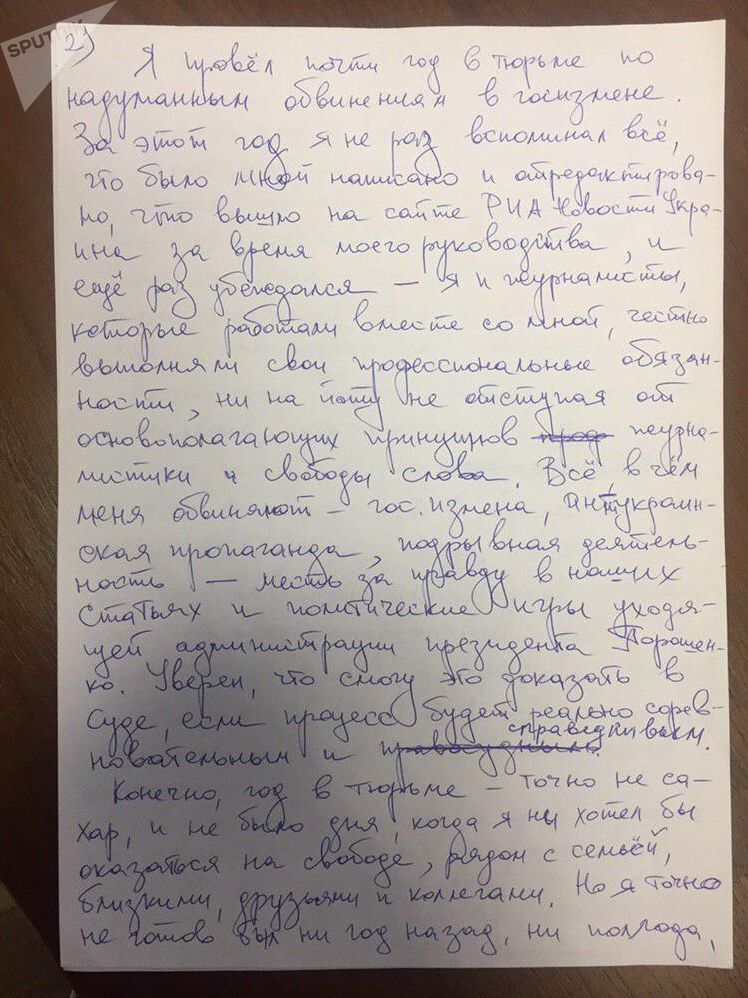 SPUTNIK
2)
Я провёл почти год в тюрьме по
надуманным обвинениям в госизмене.
За этот год я не раз вспоминал всё,
что было мной написано и отредактирова-
но, что вышло на сайте РИА Новости Укра-
ина за время моего руководства, и
ещё раз убеждался — я и журналисты,
которые работали вместе со мной, честно
выполняли свои профессиональные обязан-
ности, ни на йоту не отступая от
основополагающих принципов журна-
листики и свободы слова. Всё, в чём
меня обвиняют – гос. измена, антиукраин-
ская пропаганда, подрывная деятель-
ность — месть за правду в наших
статьях и политические игры уходя-
щей администрации президента Порошен-
ко. Уверен, что смогу это доказать в
суде, если процесс будет реально сорев-
новательным и справедливым.
Конечно, год в тюрьме – точно не са-
хар, и не было дня, когда я ны хотел бы
оказаться на свободе, рядом с семьёй,
близкими, друзьями и коллегами. Но я точно
не готов был ни год назад, ни полгода,